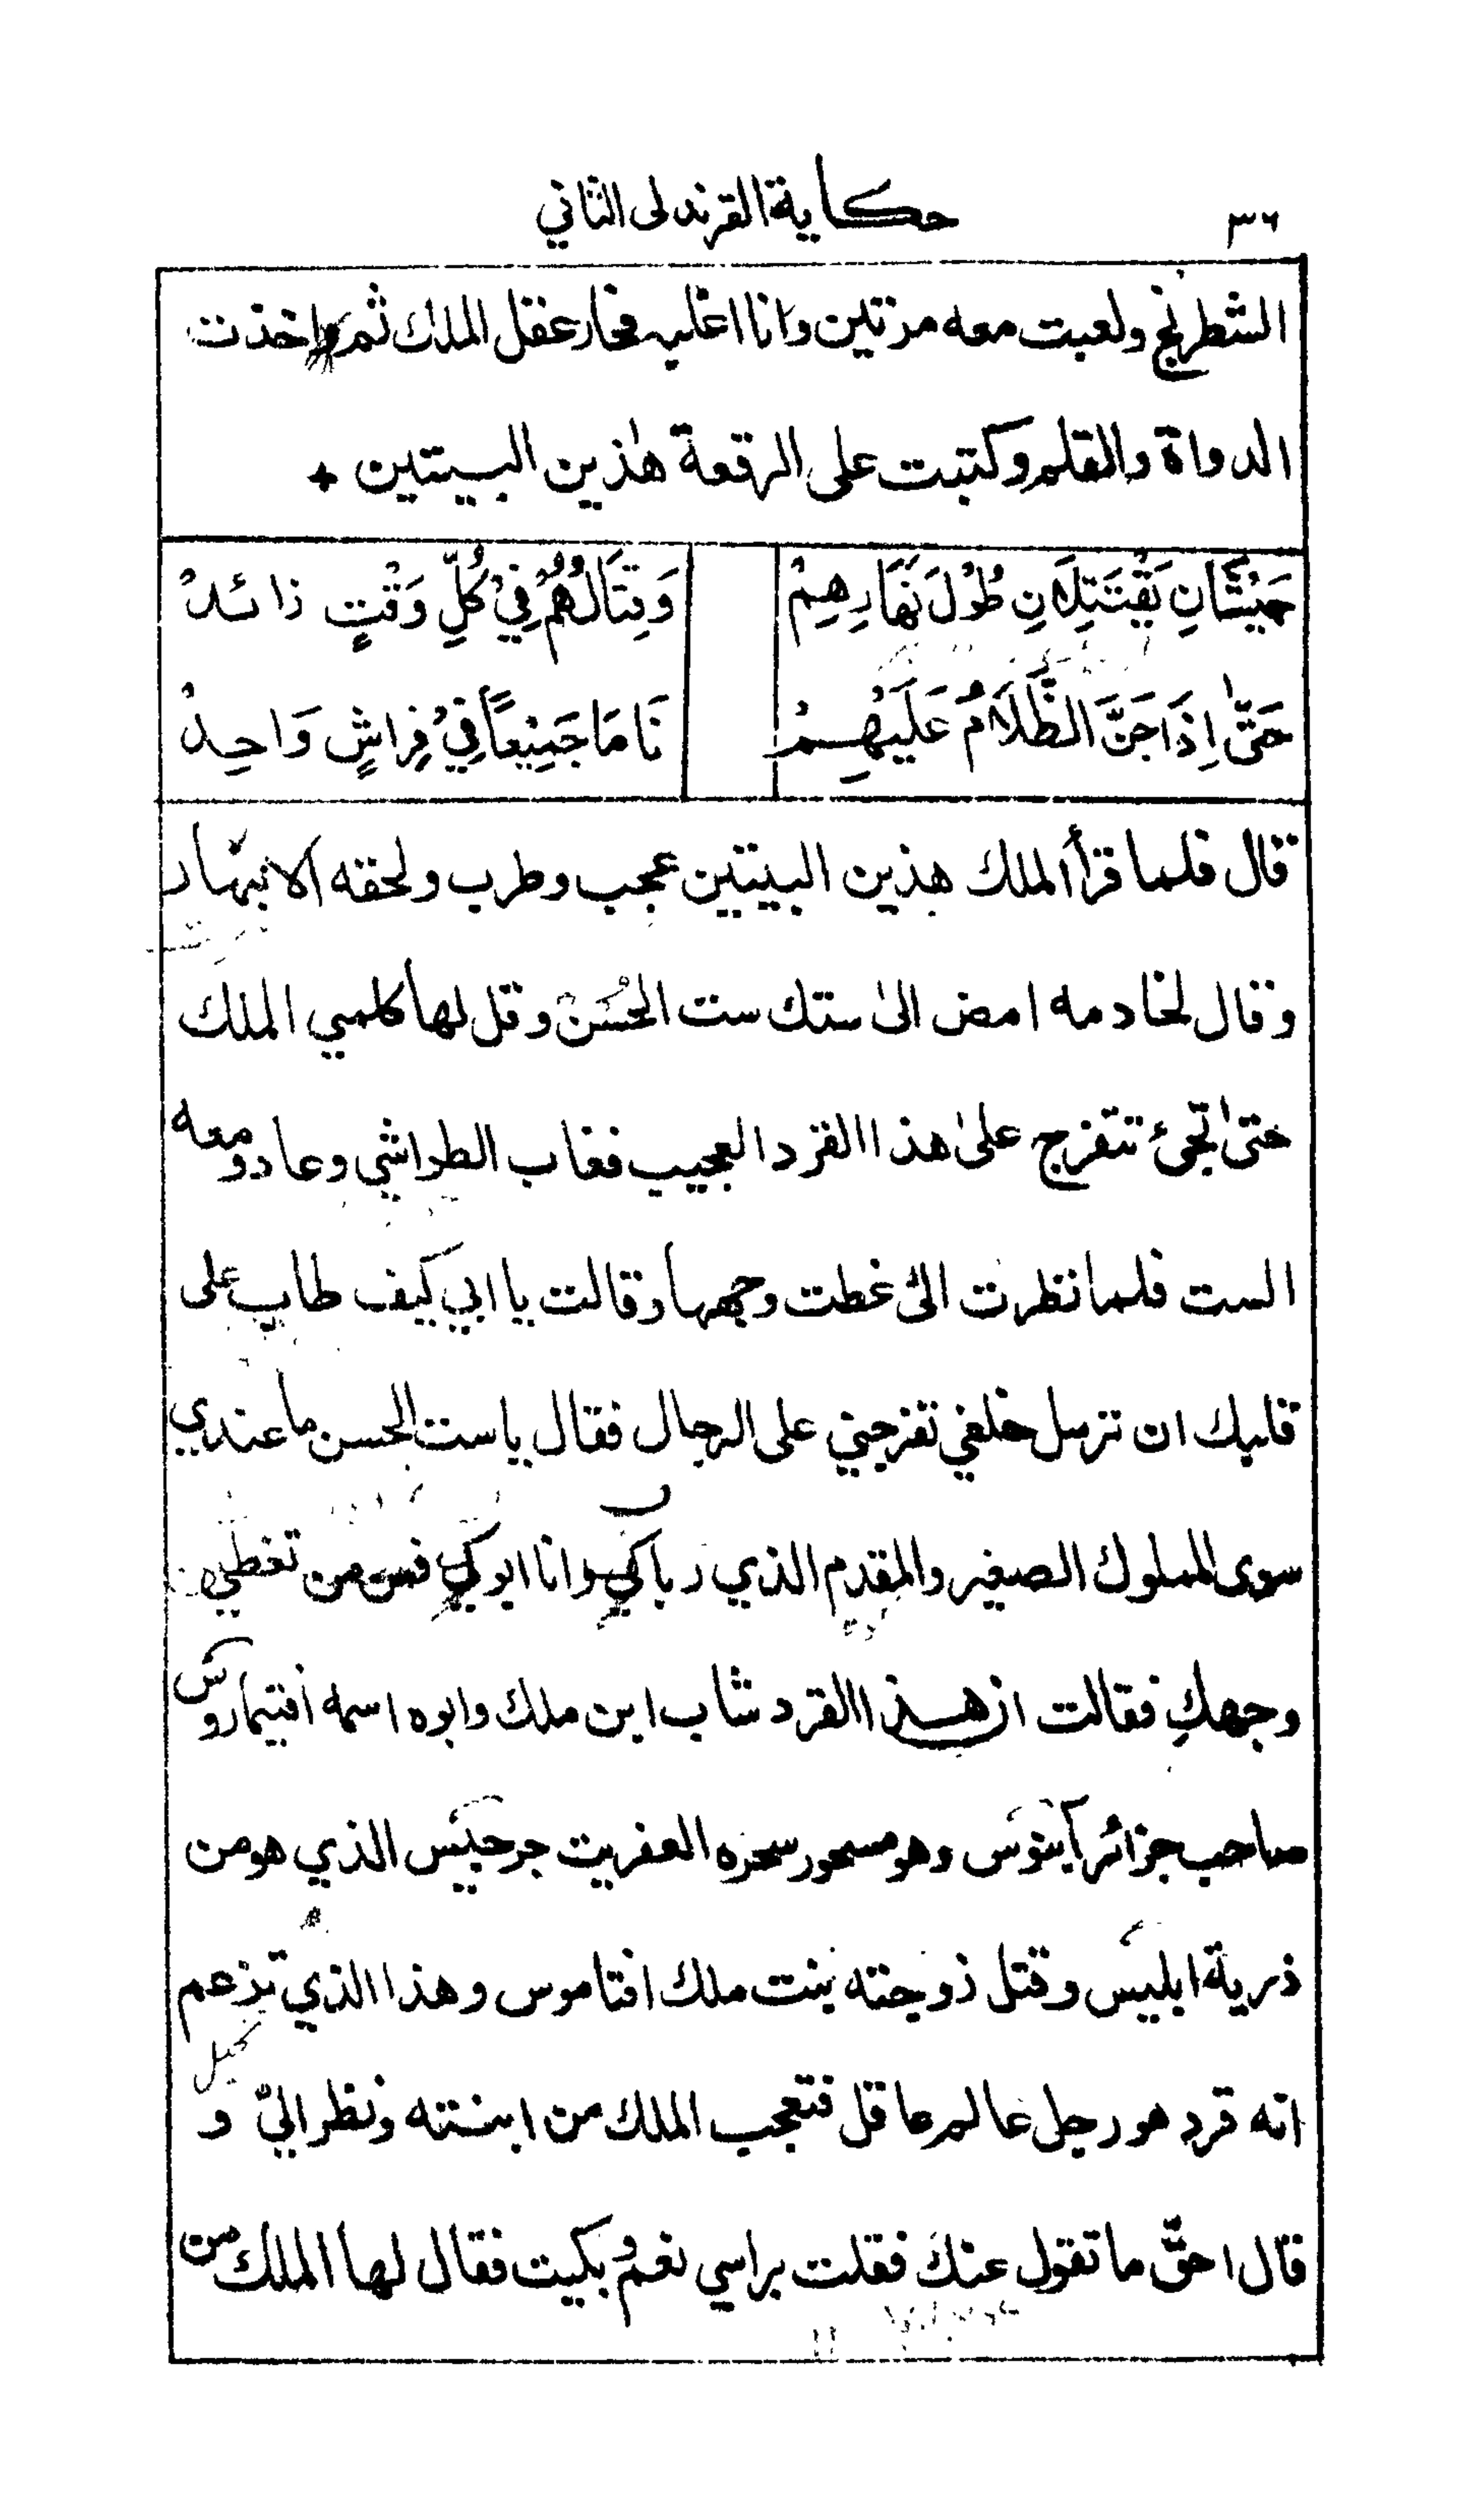 ٣٦
حكاية القرندلى الثاني
الشطرنج ولعبت معه مرتين وانا اغلبه فحار عقل الملك ثم واخذت
الدواة والقلم وكتبت على الرقعة هٰذين البيتين +
جَيْشَانِ يَقْتَتِلَانِ طُوْلَ نَهَارِهِمْ وَقِتَالُهُمْ فِيْ كُلِّ وَقْتٍ زائدْ
حَتّٰى اِذَا جَنَّ الظَّلَامُ عَلَيْهِمْ نَامَا جَمِيْعًا فِيْ فِرَاشٍ وَاحِدْ
قال فلما قرأ الملك هذين البيتين عجب وطرب ولحقه الانبهار
وقال لخادمه امض الىٰ ستك ست الحُسْن وقل لها كلمي الملك
حتىٰ تجئ تتفرج علىٰ هذا القرد العجيب فغاب الطواشي وعاد ومعه
الست فلما نظرت الىّ غطت وجهها وقالت يا ابي كيف طاب على
قلبك ان ترسل خلفي تفرجني على الرجال فقال يا ست الحسن ما عندي
سوى المملوك الصغير والمقدم الذي رباكي وانا ابوكي فمن تغطي
وجهكِ فقالت ان هذا القرد شاب ابن ملك وابوه اسمه افتيماروس
صاحب جزائر آبنوس وهو مسحور سحره العفريت جرجيس الذي هو من
ذرية ابليس وقتل زوجته بنت ملك افتاموس وهذا الذي تزعم
انه قرد هو رجل عالم عاقل فتعجب الملك من ابنته ونظر اليّ و
قال احقّ ما تقول عنكَ فقلت براسي نعمْ وبكيت فقال لها الملك من